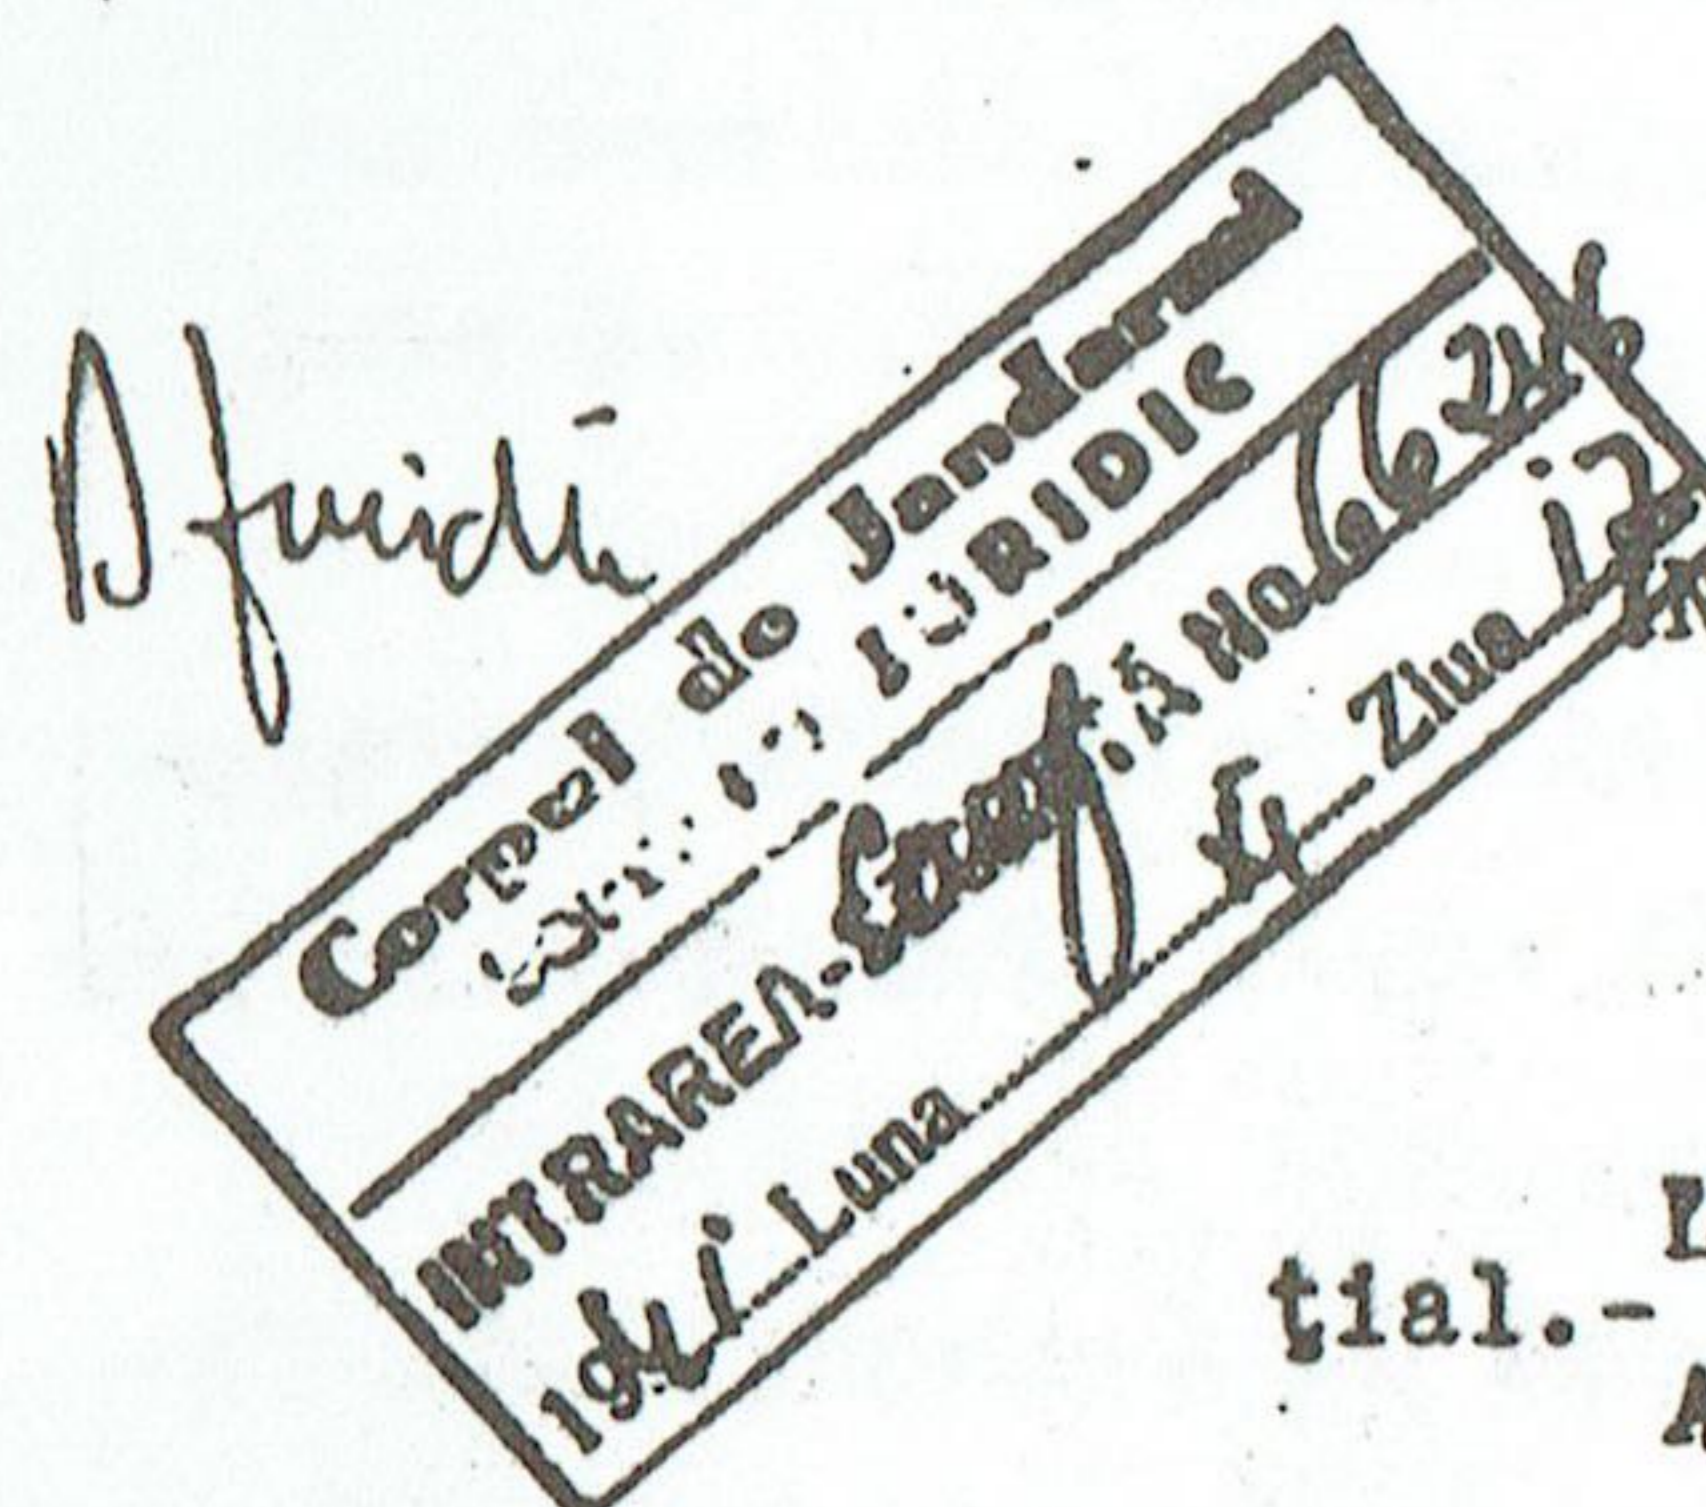 Corpul de Jandarmi
JURIDIC
INTRAREA Conf. No. 66246
1941 Luna 4 Ziua 17
țial.-